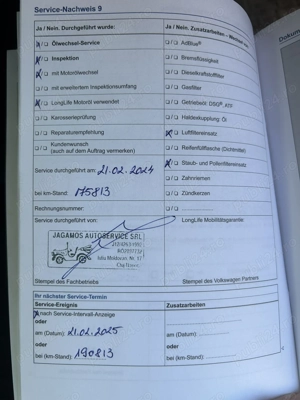 Service-Nachweis 9
Ja / Nein. Durchgeführt wurde:
Ja / Nein. Zusatzarbeiten
Ölwechsel-Service
AdBlue®
Inspektion
Bremsflüssigkeit
mit Motorölwechsel
Dieselkraftstofffilter
mit erweitertem Inspektionsumfang
Gasfilter
LongLife Motoröl verwendet
Getriebeöl DSG®, ATF
Karosserieprüfung
Haldexkupplung Öl
Reparaturempfehlung
Luftfiltereinsatz
Kundenwunsch
(auch auf dem Auftrag vermerken)
Reifenfüllflasche (Dichtmittel)
Staub- und Pollenfiltereinsatz
Service durchgeführt am: 21.02.2024
Zahnriemen
bei km-Stand: 175813
Zündkerzen
Rechnungsnummer:
Service durchgeführt von:
LongLife Mobilitätsgarantie:
JAGAMOS AUTOSERVICE SRL
Stempel des Fachbetriebs
Stempel des Volkswagen Partners
Ihr nächster Service-Termin
Service-Ereignis
Zusatzarbeiten
nach Service-Intervall-Anzeige
oder
am (Datum): 21.02.2025
am (Datum):
oder
oder
bei (km-Stand): 190813
bei (km-Stand):